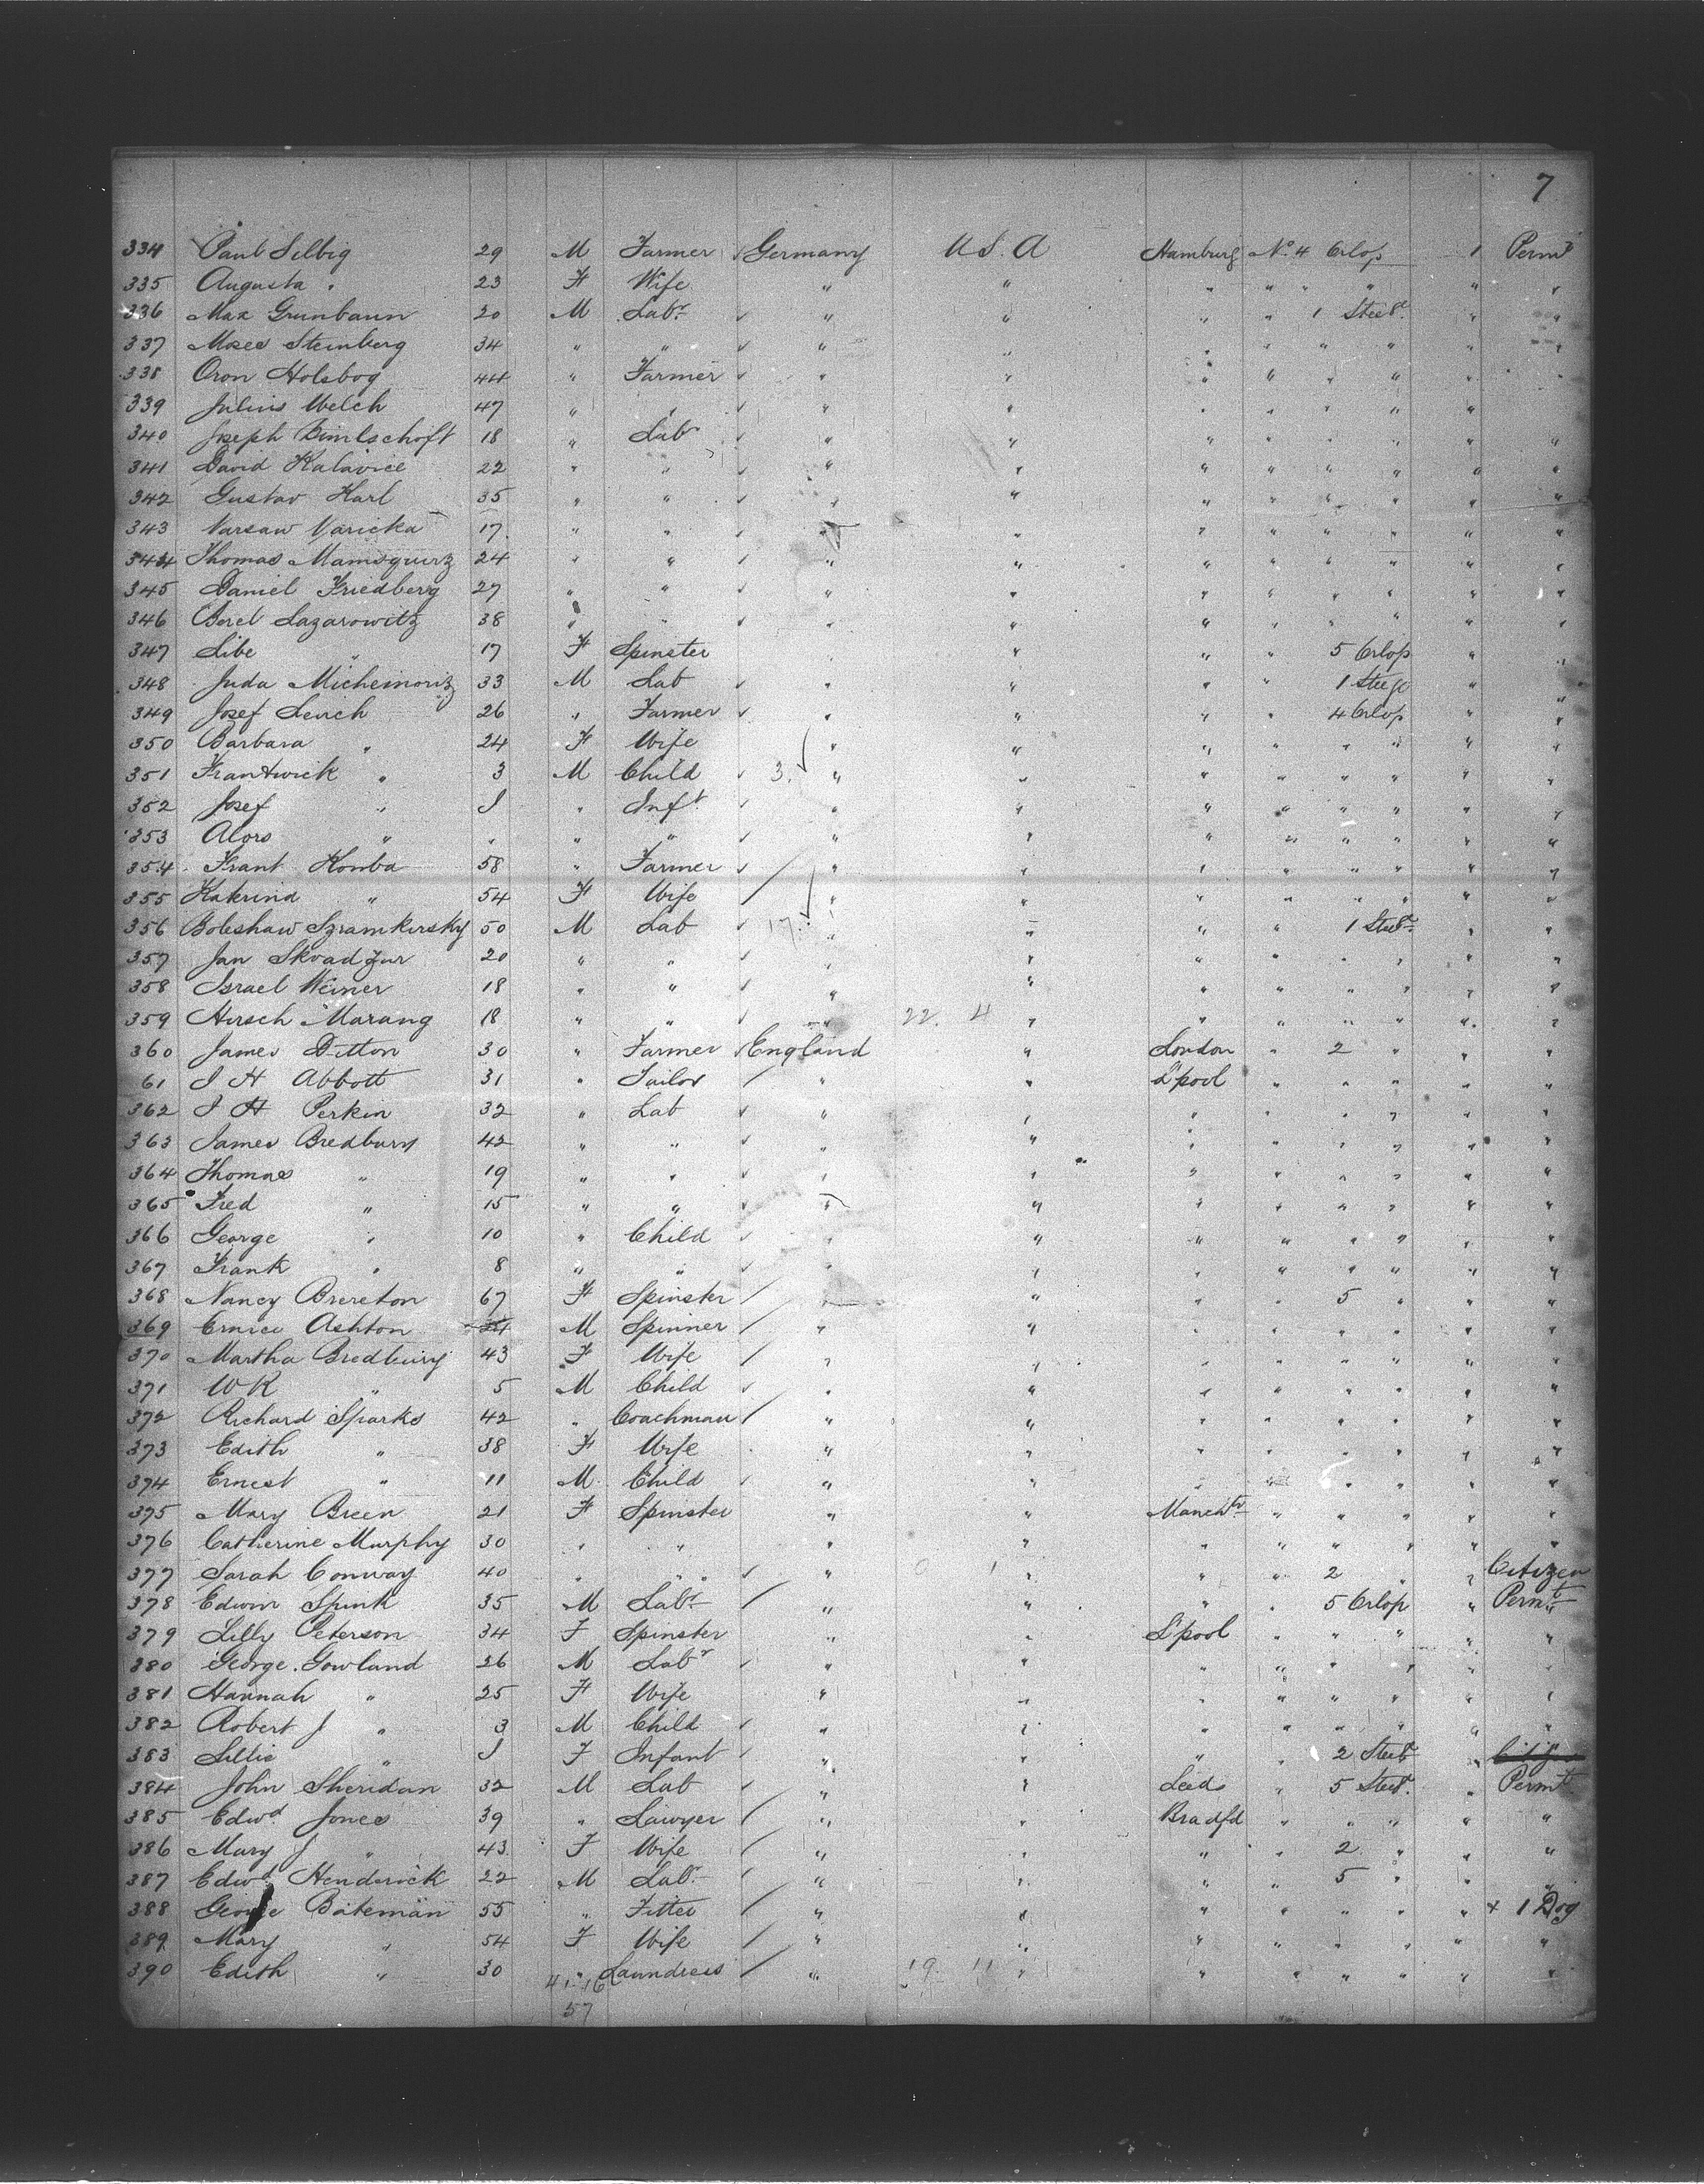 7
334 Paul Selbig 29 M Farmer Germany U.S.A Hamburg No. 4 Orlop 1 Permt
335 Augusta " 23 F Wife " " " " " " " "
336 Max Grunbaum 20 M Labr " " " " 1 Steege " "
337 Moses Steinberg 34 " " " " " " " " " "
338 Oron Holsbog 44 " Farmer " " " " " " " "
339 Julius Welch 47 " " " " " " " " " "
340 Joseph Bimlschoft 18 " Lab " " " " " " " "
341 David Kalavice 22 " " " " " " " " " "
342 Gustav Karl 35 " " " " " " " " " "
343 Varsaw Varicka 17 " " " " " " " " " "
344 Thomas Mamsquirz 24 " " " " " " " " " "
345 Daniel Friedberg 27 " " " " " " " " " "
346 Berel Lazarowitz 38 " " " " " " " " " "
347 Libe " 17 F Spinster " " " " 5 Orlop " "
348 Juda Micheinoriz 33 M Lab " " " " 1 Steege "
349 Josef Leich 26 " Farmer " " " " 4 Orlop " "
350 Barbara " 24 F Wife " " " " " " " "
351 Frantwick " 3 M Child 3. " " " " " " " "
352 Josef " I " Inft " " " " " " " "
353 Alors " " " " " " " " " " " "
354 Frant Komba 58 " Farmer " " " " " " " "
355 Katrind " 54 F Wife " " " " " " " "
356 Boleshaw Szramkirsky 50 M Lab 17. " " " " 1 Steege " "
357 Jan Skvadzur 20 " " " " " " " " " "
358 Israel Weiner 18 " " " " " " " " " "
359 Hirsch Marang 18 " " " 22. 4 " " " " " " "
360 James Ditton 30 " Farmer England " London " 2 " " "
61 I H Abbott 31 " Tailor " " L'pool " " " " "
362 I H Perkin 32 " Lab " " " " " " " "
363 James Bredbury 42 " " " " " " " " " "
364 Thomas " 19 " " " " " " " " " "
365 Fred " 15 " " " " " " " " " "
366 George " 10 " Child " " " " " " " "
367 Frank " 8 " " " " " " " " " "
368 Nancy Brereton 67 F Spinster " " " " 5 " " "
369 Ernice Ashton M Spinner " " " " " " " "
370 Martha Bredbury 43 F Wife " " " " " " " "
371 W R " 5 M Child " " " " " " " "
372 Richard Sparks 42 " Coachman " " " " " " " "
373 Edith " 38 F Wife " " " " " " " "
374 Ernest " 11 M Child " " " " " " " "
375 Mary Breen 21 F Spinster " " Manchtr " " " " "
376 Catherine Murphy 30 " " " " " " " " " "
377 Sarah Conway 40 " " " 0 1 " " " 2 " " Citizen
378 Edwin Spink 35 M Labr " " " " 5 Orlop " Permt
379 Lilly Peterson 34 F Spinster " " L'pool " " " " "
380 George Gowland 26 M Labr " " " " " " " "
381 Hannah " 25 F Wife " " " " " " " "
382 Robert J " 3 M Child " " " " " " " "
383 Lillie " I F Infant " " " " 2 Steege "
384 John Sheridan 32 M Lab " " Leeds " 5 Steege " Permt
385 Edwd. Jones 39 " Lawyer " " Bradfd " " " " "
386 Mary J " 43 F Wife " " " " 2 " " "
387 Edwd Henderick 22 M Labr " " " " 5 " " "
388 George Bateman 55 " Fitter " " " " " " " + 1 Dog
389 Mary " 54 F Wife " " " " " " " "
390 Edith " 30 " Laundress " 19 11 " " " " " " "
41 16
57